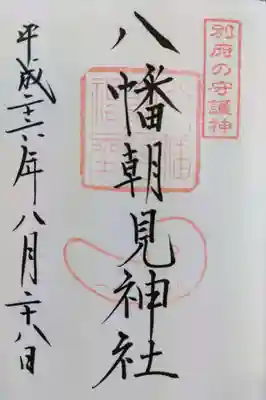 別府の守護神
八幡朝見神社
平成二十六年八月二十八日